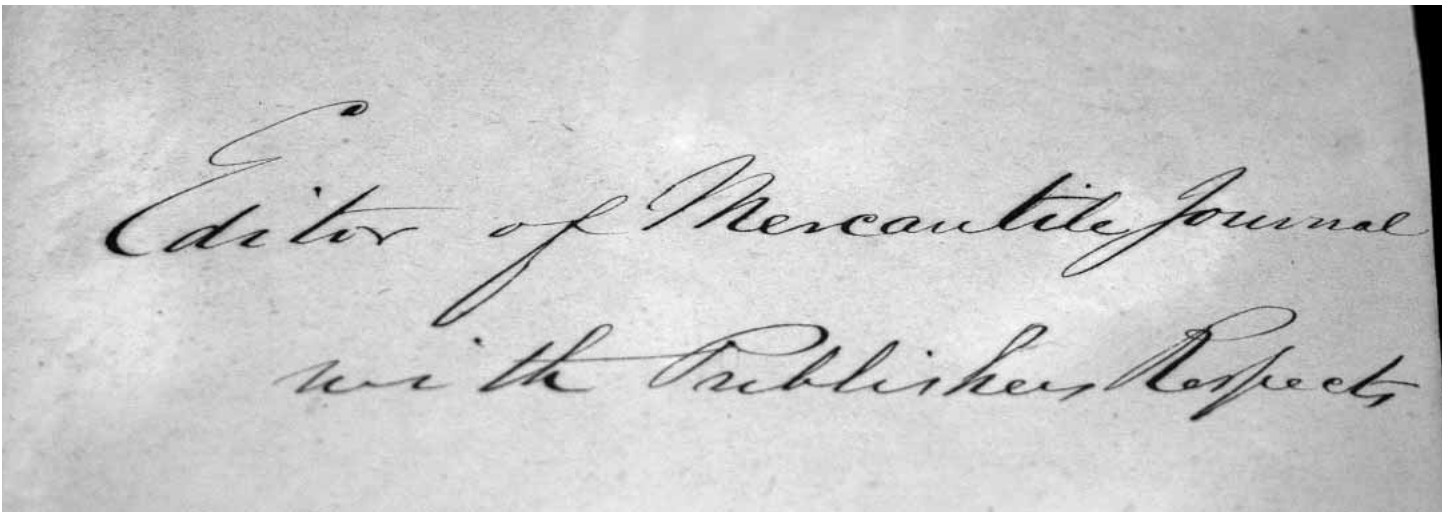 Editor of Mercantile Journal
with Publishers Respects